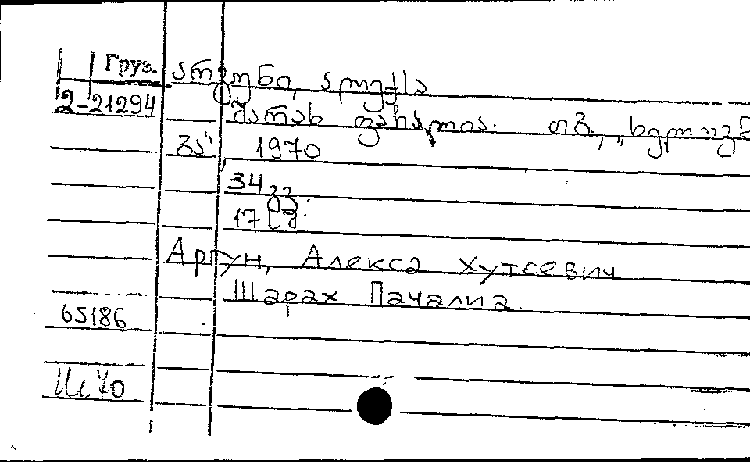 Груз. არგუნი, ალექსა
2-21294 შარახ ფაჩალია. თბ., „ხელოვნ
ბა", 1970
34 გვ.
17 სმ.
Аргун, Алекса Хутсевич
Шарах Пачалиа.
65186